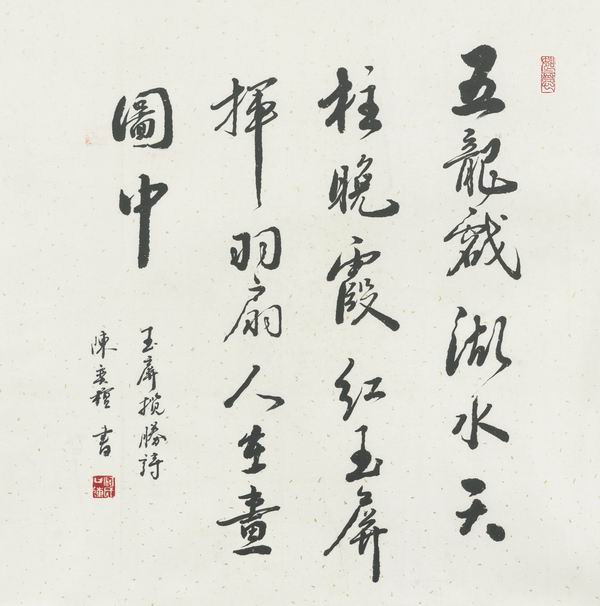 五龍戲湖水天
柱晚霞紅玉屏
揮羽扇人在畫
圖中
玉屏攬勝詩
陳奕穜書